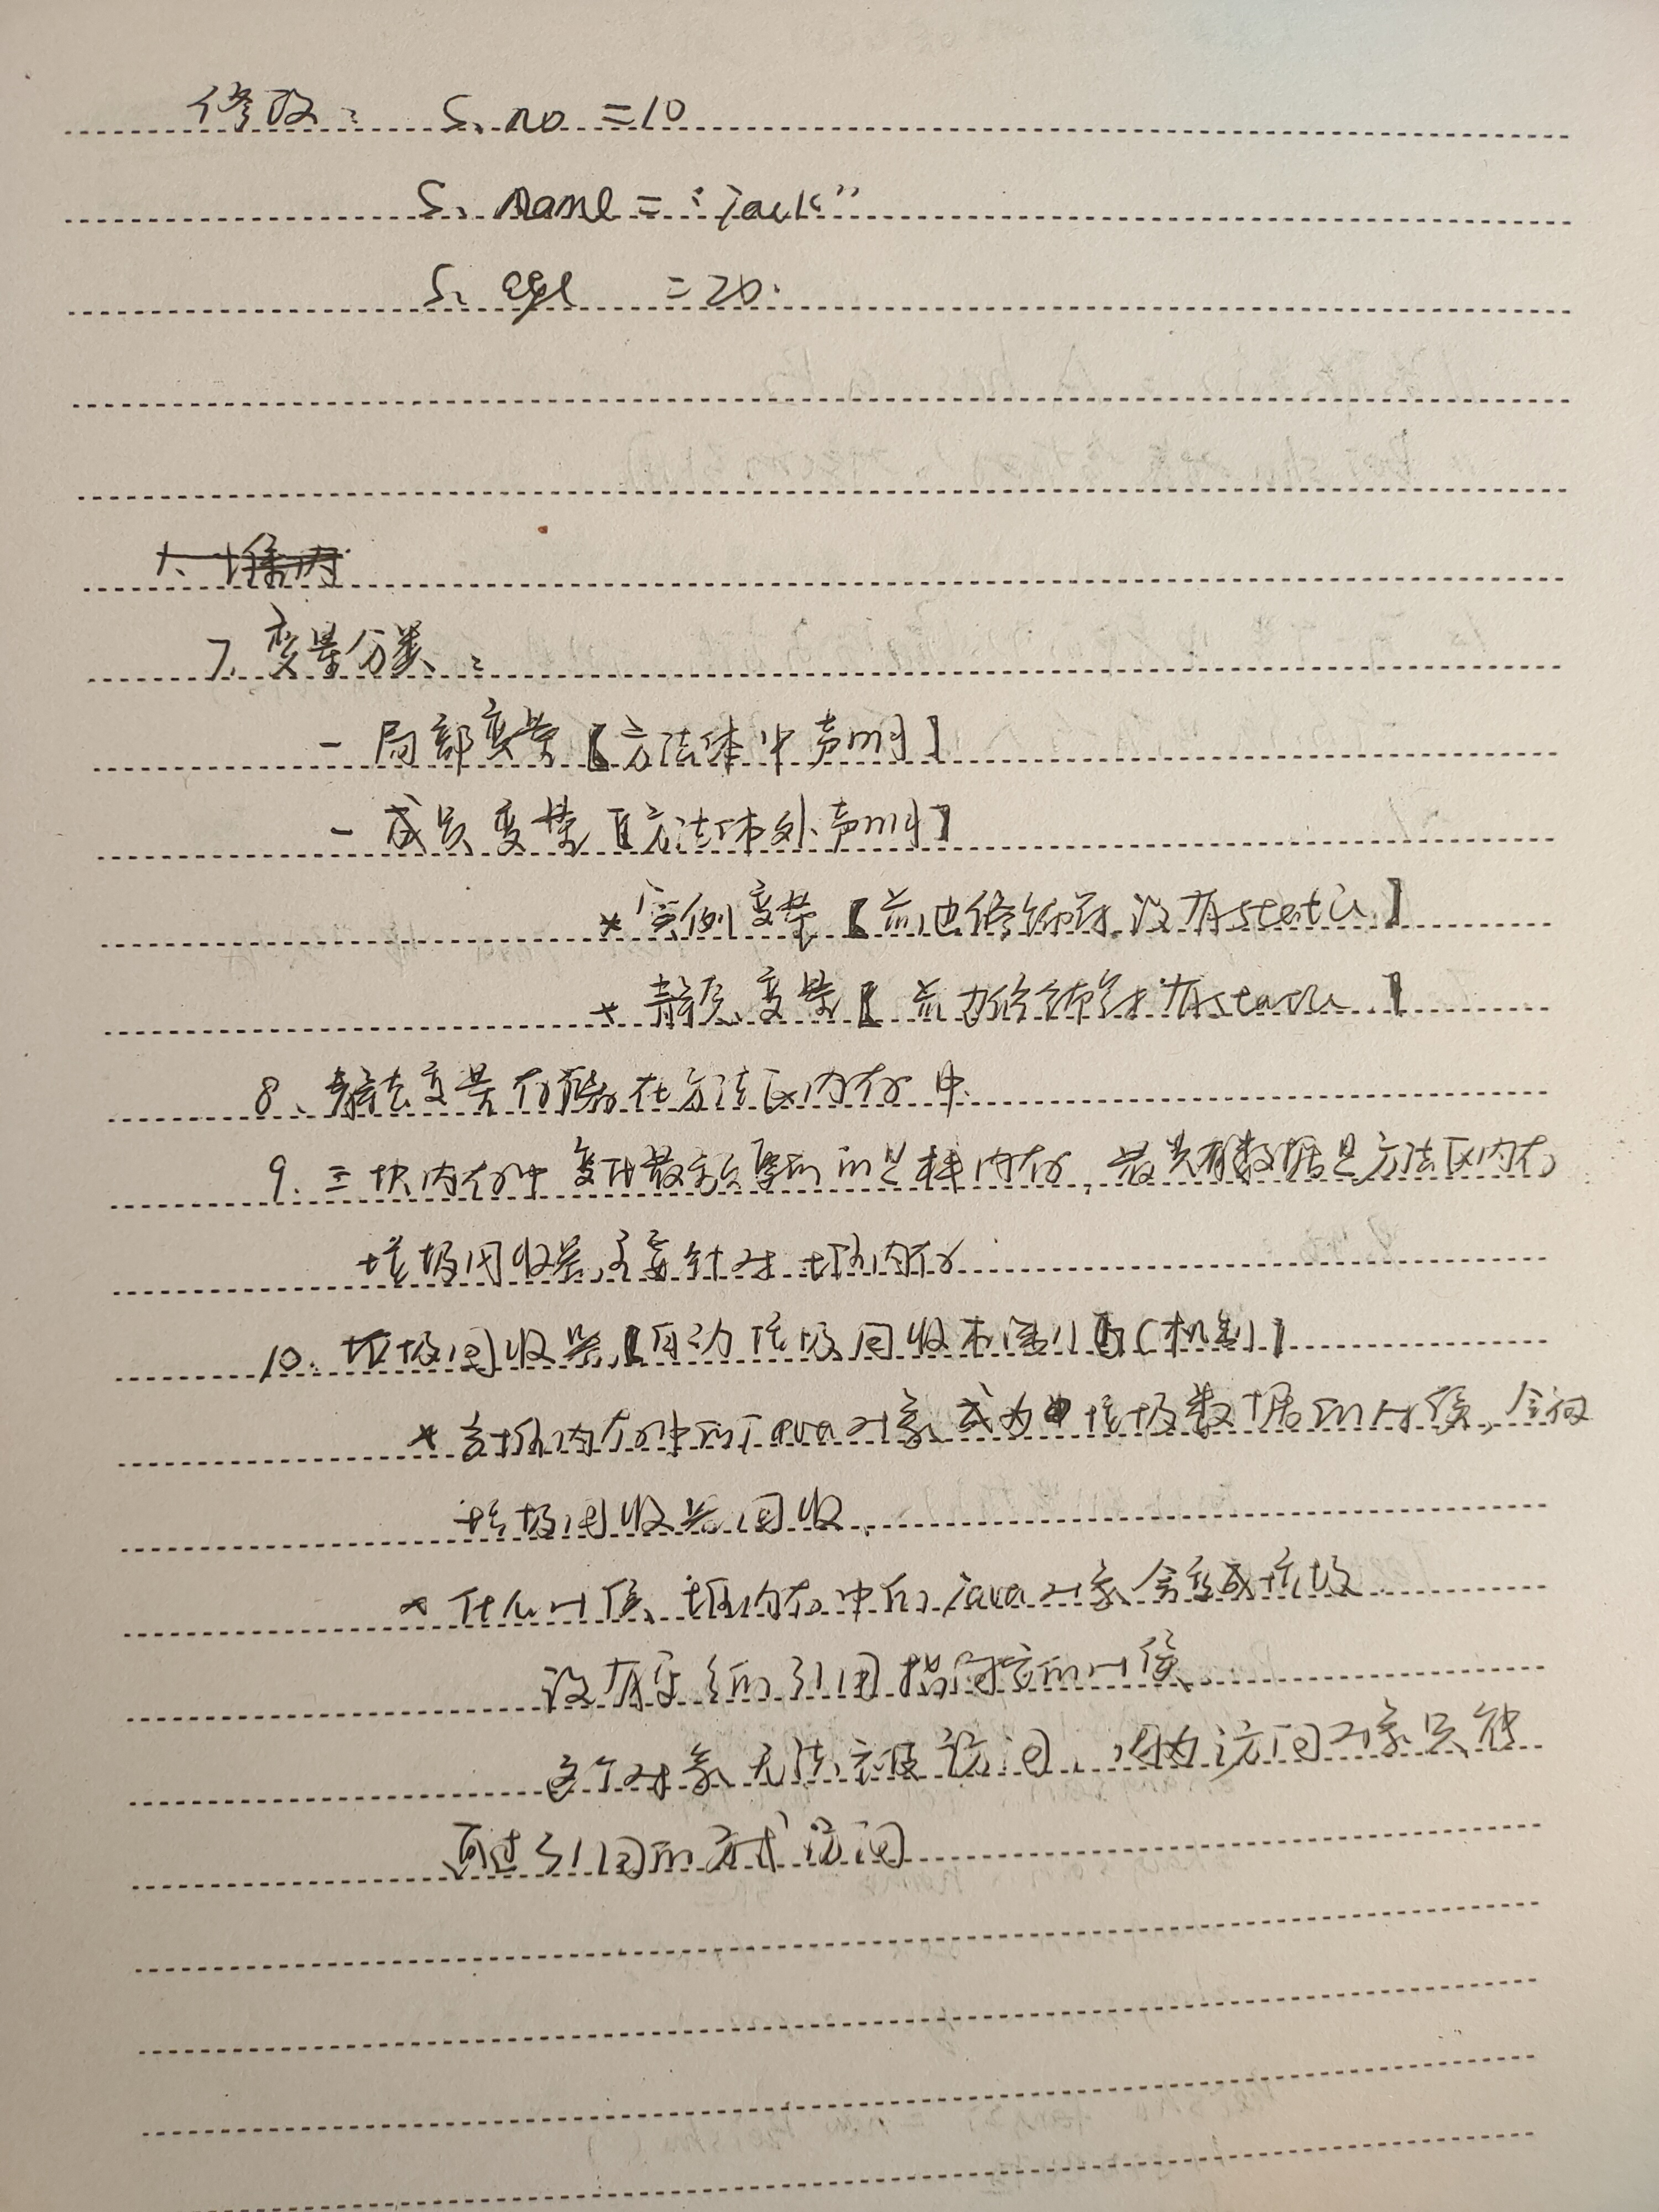 修改: s.no =10
s.name = "jack"
s.age =20.
7.变量分类:
- 局部变量【方法体中声明】
- 成员变量【方法体外声明】
* 实例变量【前边修饰符没有static】
* 静态变量【前边修饰符有static】
8、静态变量存储在方法区内存中.
9.三块内存中变化最频繁的是栈内存,最先有数据是方法区内存
垃圾回收器主要针对堆内存
10.垃圾回收器【自动垃圾回收机制】(机制】
* 当堆内存中的Java对象成为垃圾数据的时候,会被
垃圾回收器回收.
* 什么时候堆内存中的java对象会变成垃圾
没有更多的引用指向它的时候.
这个对象无法被访问,因为访问对象只能
通过引用的方式访问